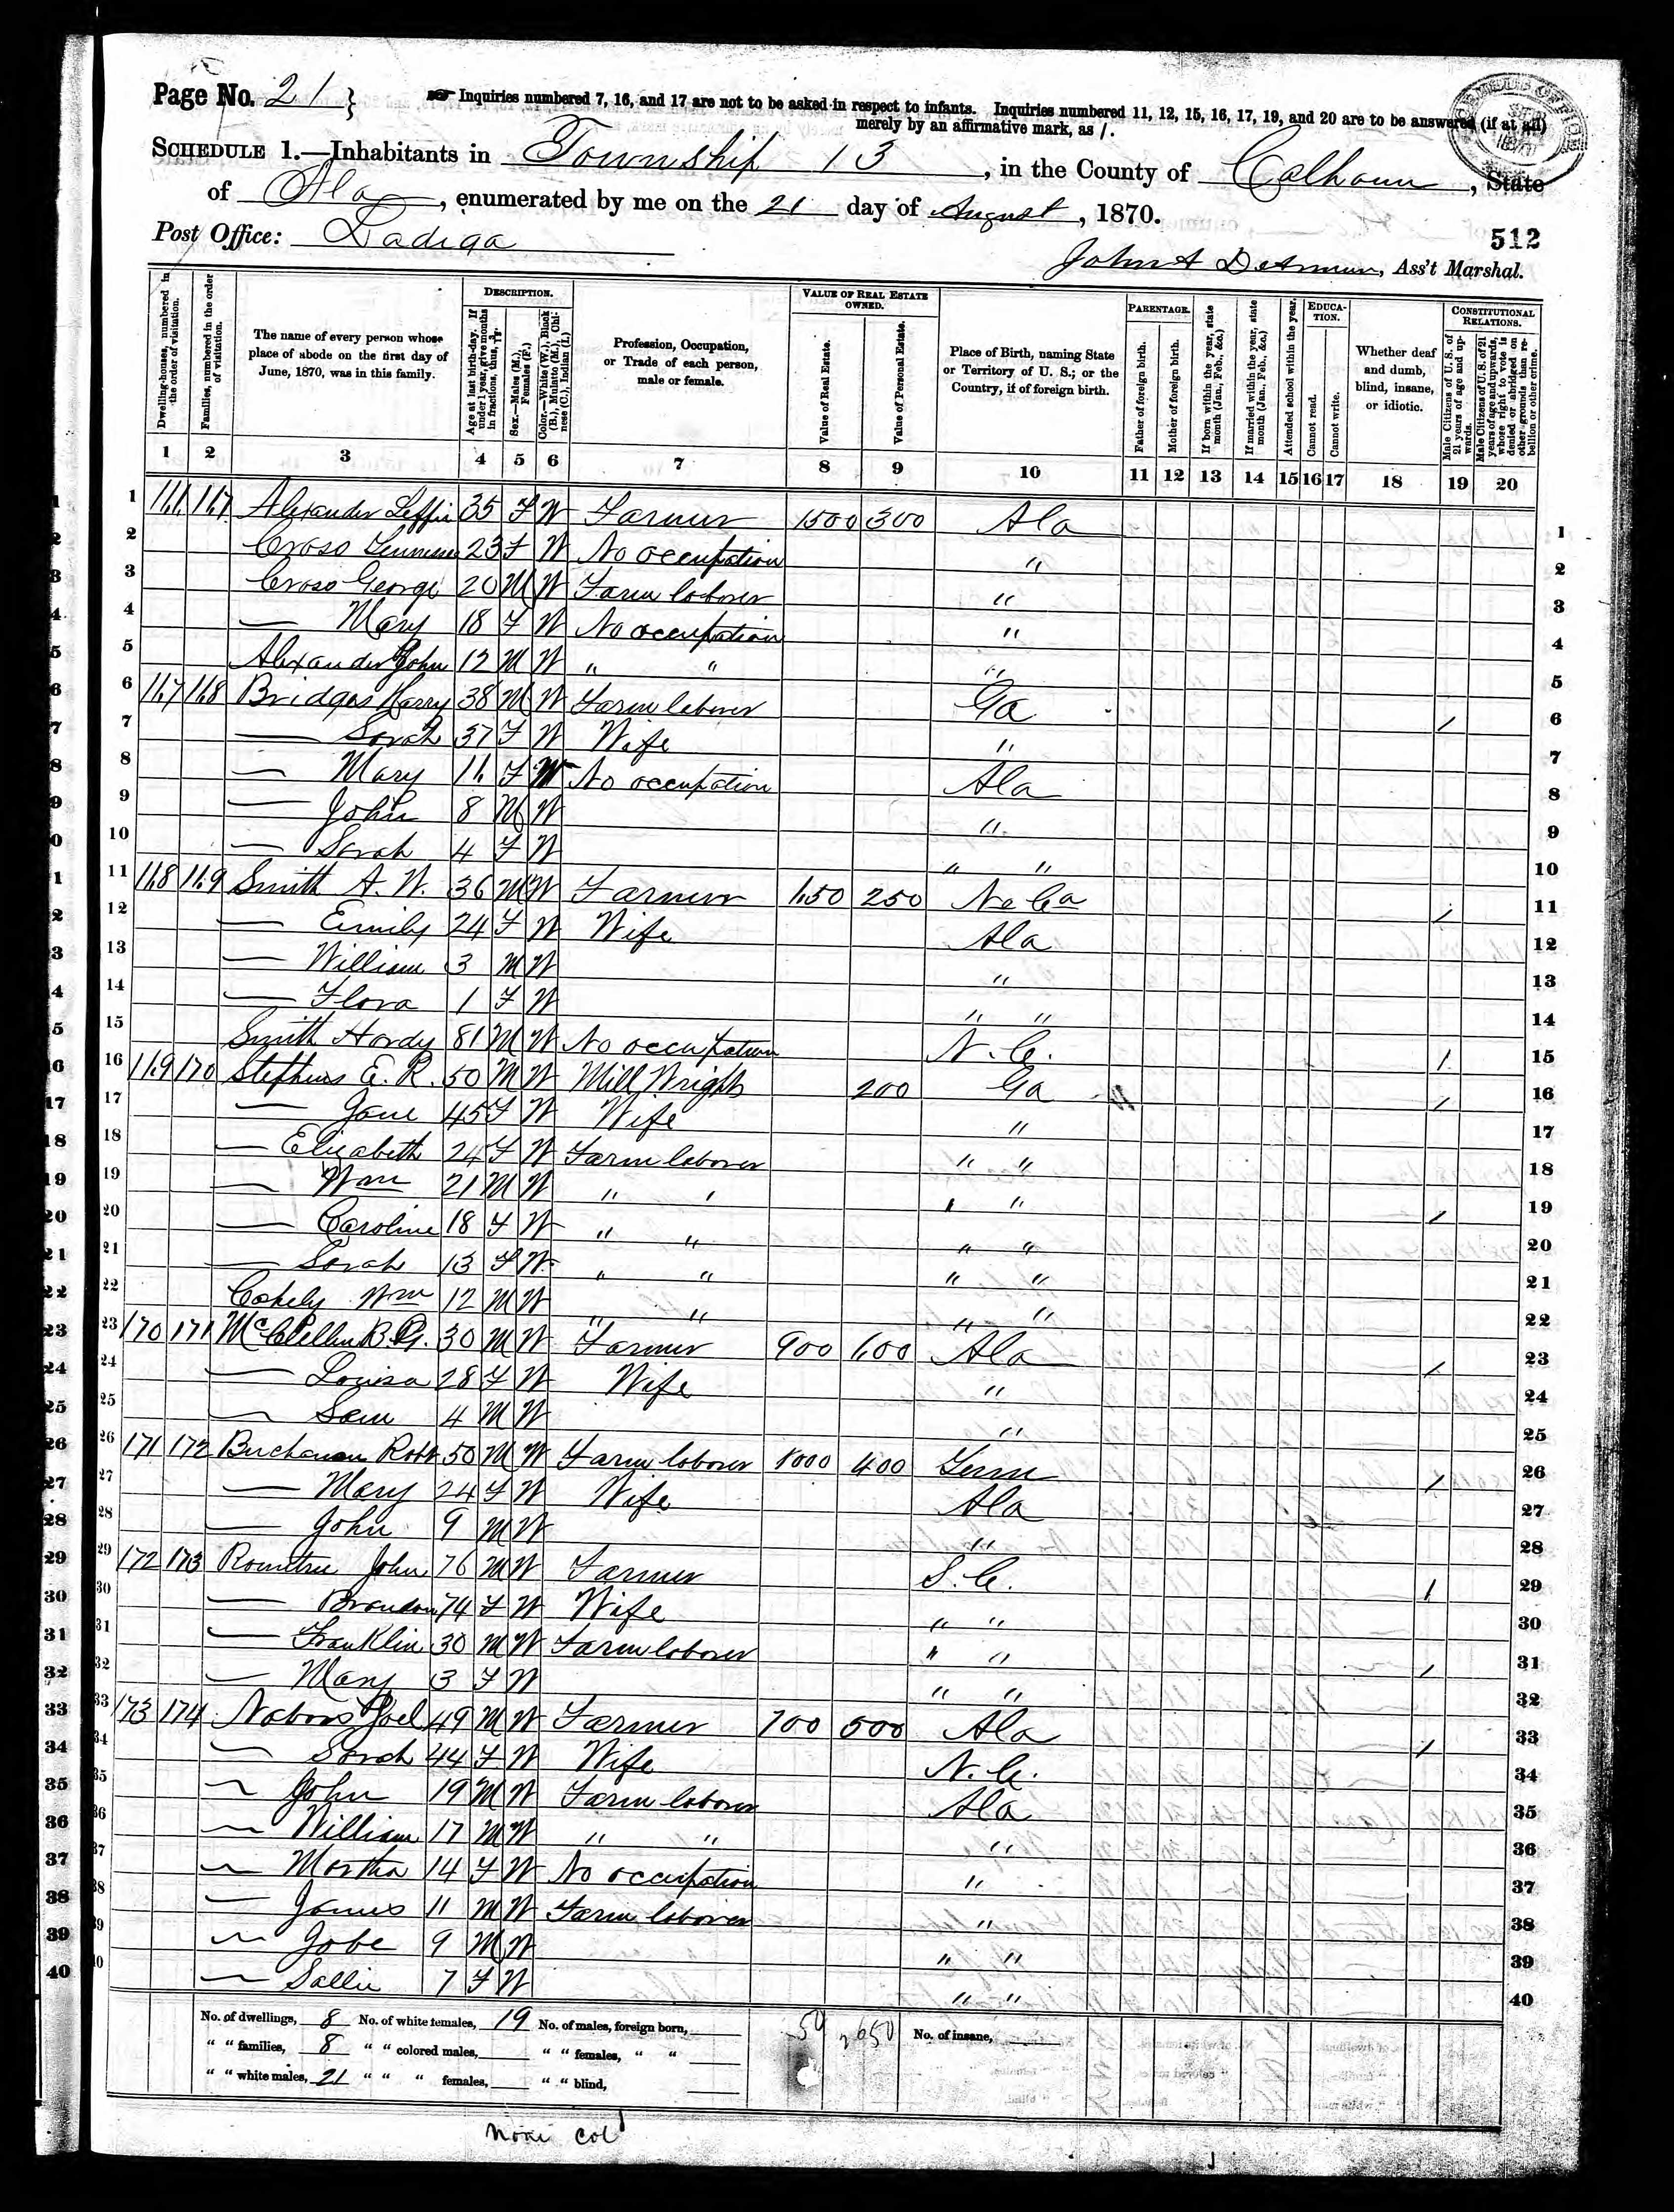 Page No. 21 }
Inquiries numbered 7, 16, and 17 are not to be asked in respect to infants. Inquiries numbered 11, 12, 15, 16, 17, 19, and 20 are to be answered (if at all)
merely by an affirmative mark, as /.
SCHEDULE 1.—Inhabitants in Township 13, in the County of Calhoun, State
of Ala, enumerated by me on the 21 day of August, 1870.
Post Office: Ladiga
512
John A, Ass't Marshal.
Dwelling-houses, numbered in the order of visitation.
Families, numbered in the order of visitation.
The name of every person whose place of abode on the first day of June, 1870, was in this family.
DESCRIPTION.
Age at last birth-day. If under 1 year, give months in fractions, thus, 3/12
Sex.—Males (M.), Females (F.)
Color.—White (W.), Black (B.), Mulatto (M.), Chinese (C.), Indian (I.)
Profession, Occupation, or Trade of each person, male or female.
VALUE OF REAL ESTATE OWNED.
Value of Real Estate.
Value of Personal Estate.
Place of Birth, naming State or Territory of U. S.; or the Country, if of foreign birth.
PARENTAGE.
Father of foreign birth.
Mother of foreign birth.
If born within the year, state month (Jan., Feb., &c.)
If married within the year, state month (Jan., Feb., &c.)
Attended school within the year.
EDUCATION.
Cannot read.
Cannot write.
Whether deaf and dumb, blind, insane, or idiotic.
CONSTITUTIONAL RELATIONS.
Male Citizens of U. S. of 21 years of age and upwards.
Male Citizens of U. S. of 21 years of age and upwards, whose right to vote is denied or abridged on other grounds than rebellion or other crime.
1 2 3 4 5 6 7 8 9 10 11 12 13 14 15 16 17 18 19 20
1 166 167 Alexander 35 F W Farmer 1500 300 Ala 1
2 Cross 23 F W No occupation " 2
3 Cross George 20 M W Farm laborer " 3
4 — Mary 18 F W No occupation " 4
5 Alexander John 12 M W " " " 5
6 167 168 Bridges Harry 38 M W Farm laborer Ga / 6
7 — Sarah 37 F W Wife " 7
8 — Mary 11 F W No occupation Ala 8
9 — John 8 M W " 9
10 — Sarah 4 F W " " 10
11 168 169 Smith A. W. 36 M W Farmer 650 250 No Ca / 11
12 — Emily 24 F W Wife Ala 12
13 — William 3 M W " 13
14 — Flora 1 F W " " 14
15 Smith Hardy 81 M W No occupation N. C. / 15
16 169 170 Stephens E. R. 50 M W Mill Wright 200 Ga / 16
17 — Jane 45 F W Wife " 17
18 — Elizabeth 24 F W Farm laborer " " 18
19 — Wm 21 M W " " " " / 19
20 — Caroline 18 F W " " " " 20
21 — Sarah 13 F W " " " " 21
22 Wm 12 M W " " " " 22
23 170 171 McClellen B. G. 30 M W Farmer 900 600 Ala / 23
24 — Louisa 28 F W Wife " 24
25 — Sam 4 M W " 25
26 171 172 Buchanan Robt 50 M W Farm laborer 1000 400 Tenn / 26
27 — Mary 24 F W Wife Ala 27
28 — John 9 M W " 28
29 172 173 Rountree John 76 M W Farmer S. C. / 29
30 — 74 F W Wife " " 30
31 — Franklin 30 M W Farm laborer " " / 31
32 — Mary 3 F W " " 32
33 173 174 Nabors Joel 49 M W Farmer 700 500 Ala / 33
34 — Sarah 44 F W Wife N. C. 34
35 — John 19 M W Farm laborer Ala 35
36 — William 17 M W " " " 36
37 — Martha 14 F W No occupation " 37
38 — James 11 M W Farm laborer " 38
39 — Jobe 9 M W " " 39
40 — Sallie 7 F W " " 40
No. of dwellings, 8 No. of white females, 19 No. of males, foreign born, 2650 No. of insane,
" " families, 8 " " colored males, " " females, " "
" " white males, 21 " " " females, " " blind,
col